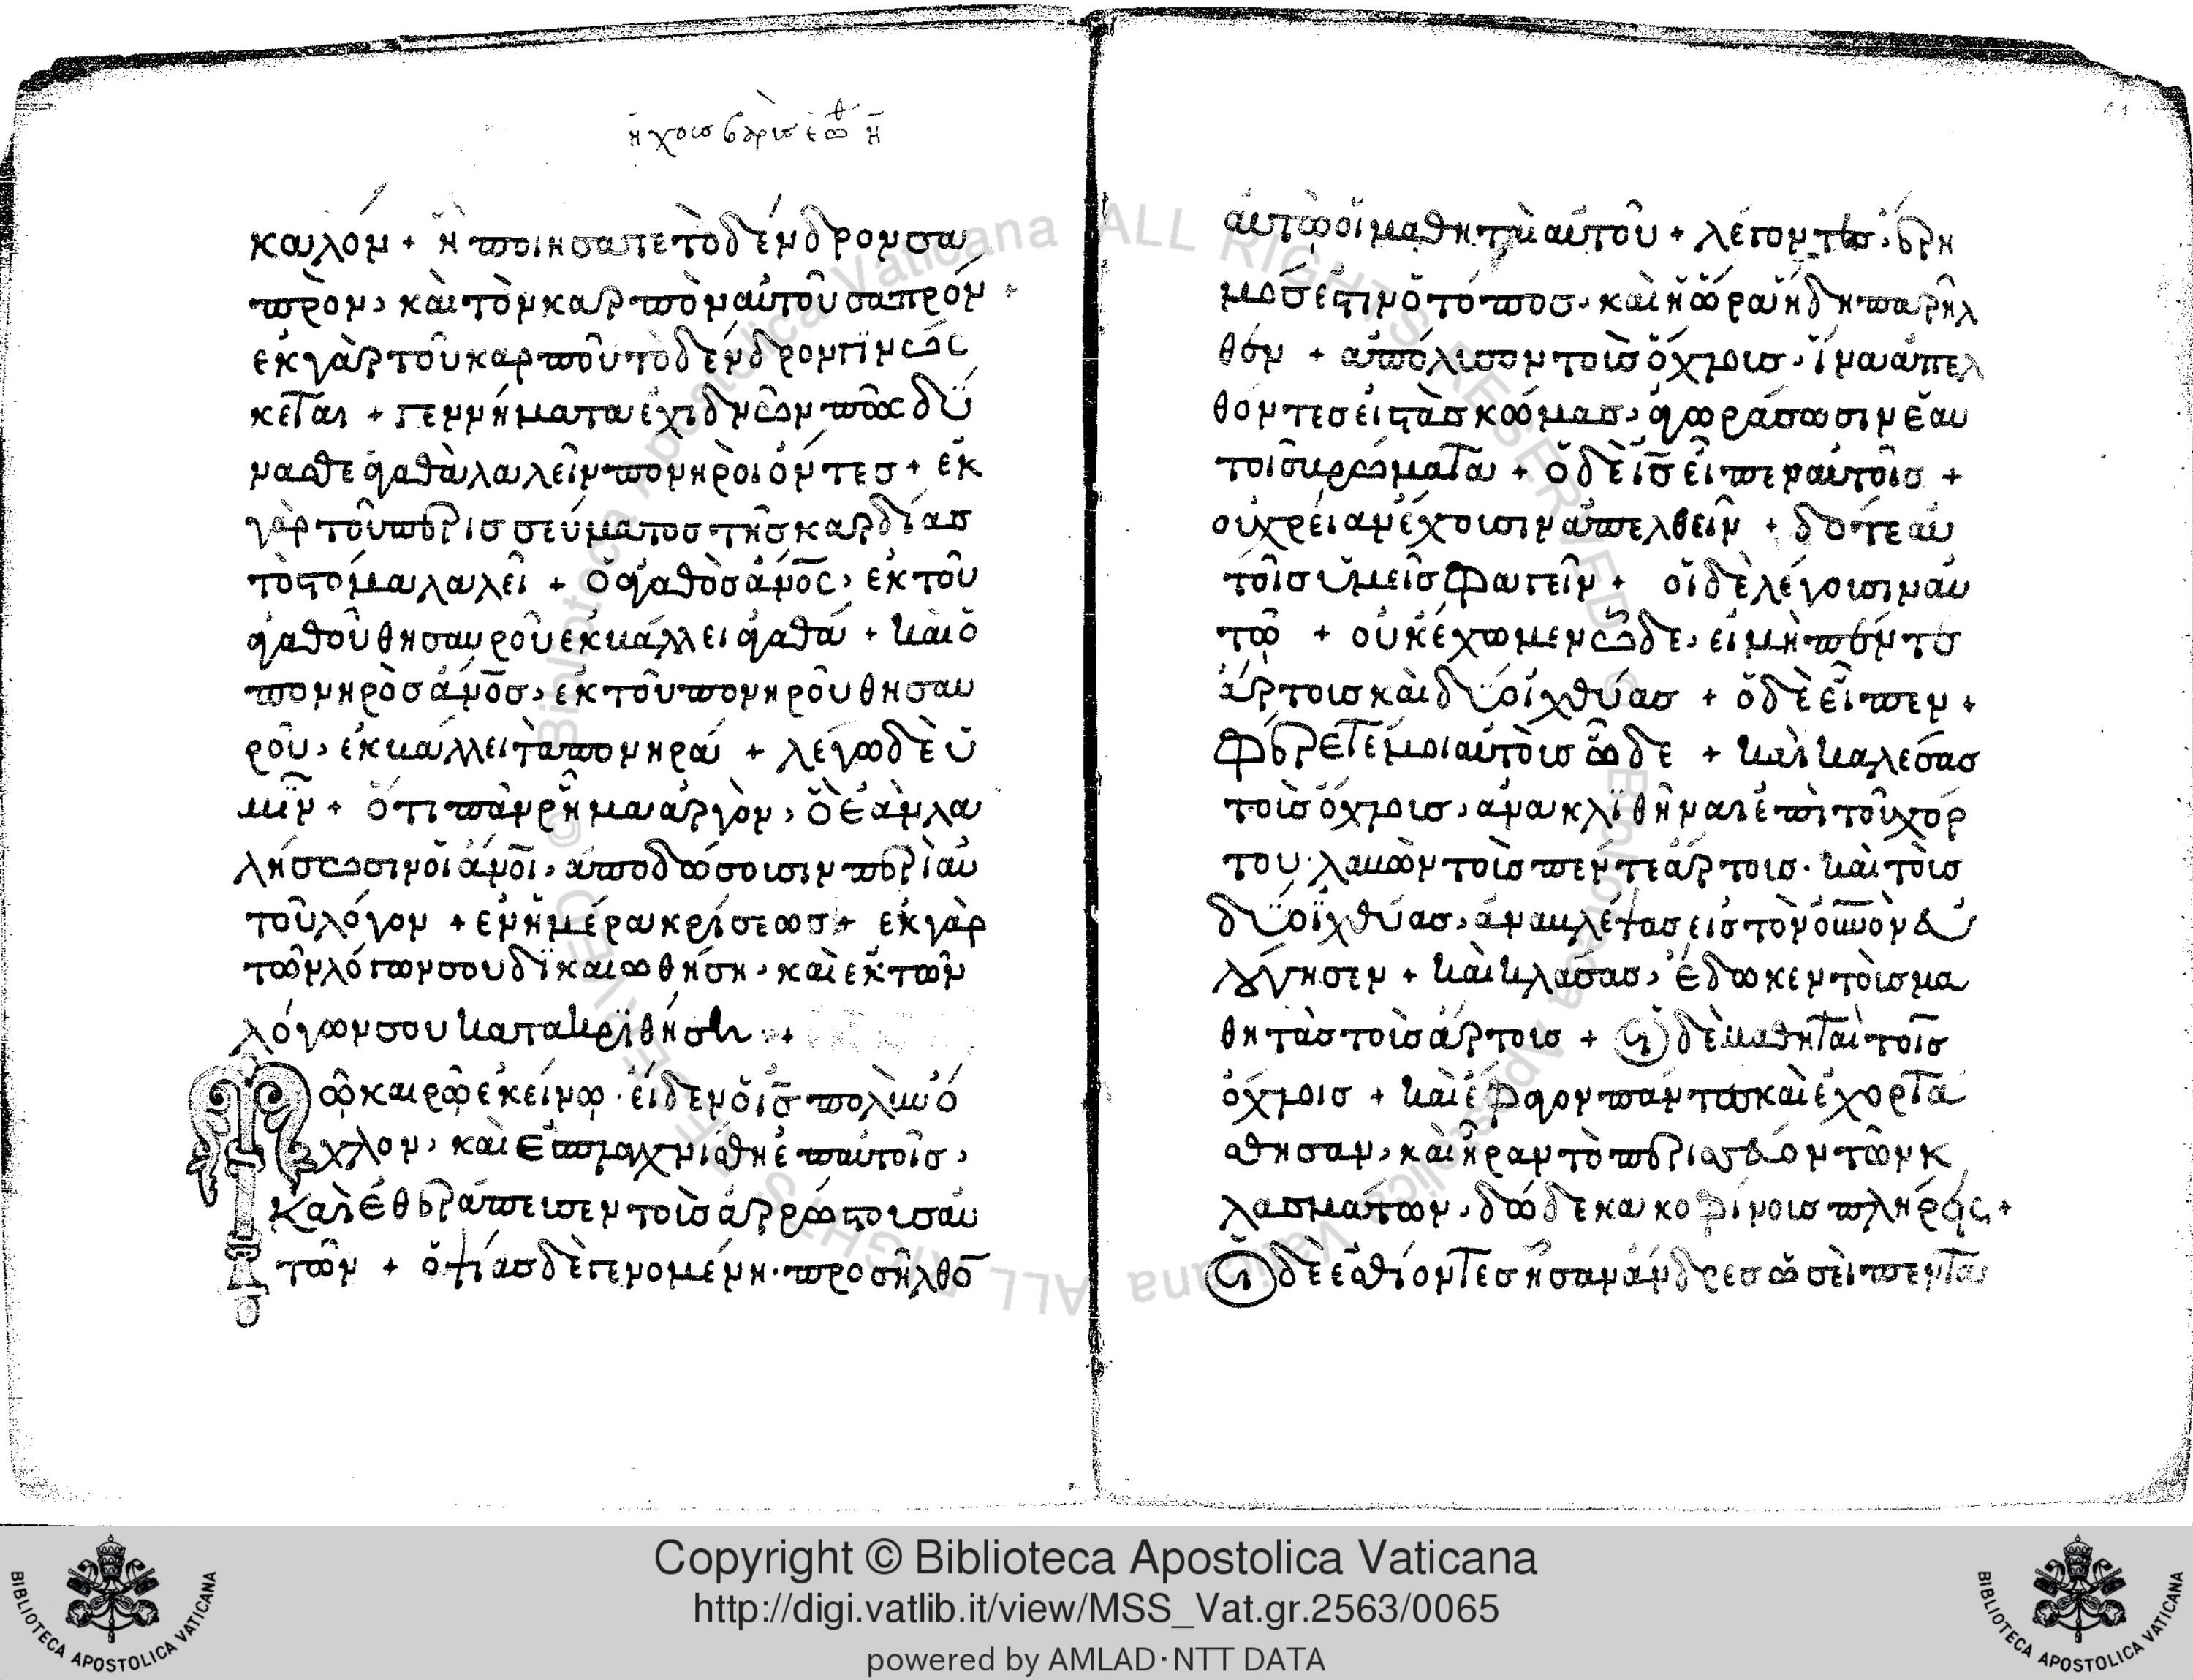 καλόν + ἢ ποιήσατε τὸ δένδρον σα
πρὸν, καὶ τὸν καρπὸν αὐτοῦ σαπρόν +
ἐκ γὰρ τοῦ καρποῦ τὸ δένδρον γινώς
κεται + γεννήματα ἐχιδνῶν πῶς δύ
νασθε ἀγαθὰ λαλεῖν πονηροὶ ὄντες + ἐκ
γὰρ τοῦ περισσεύματος τῆς καρδίας
τὸ στόμα λαλεῖ + ὁ ἀγαθὸς ἄνος, ἐκ τοῦ
ἀγαθοῦ θησαυροῦ ἐκβάλλει ἀγαθά + καὶ ὁ
πονηρὸς ἄνος, ἐκ τοῦ πονηροῦ θησαυ
ροῦ, ἐκβάλλει τὰ πονηρά + λέγω δὲ ὑ
μῖν + ὅτι πὰν ρῆμα ἀργὸν, ὃ ἐὰν λα
λήσωσιν οἱ ἄνοι, ἀποδώσουσιν περὶ αὐ
τοῦ λόγον + ἐν ἡμέρα κρίσεως + ἐκ γὰρ
τῶν λόγων σου δϊκαιωθήση, καὶ ἐκ τῶν
λόγων σου κατακρϊθήση +
Τῶ καιρῶ ἐκείνω · εἶδεν ὁ ις πολὺν ὄ
χλον, καὶ ἐσπλαχνίσθη ἐπ αὐτοῖς,
καὶ ἐθεράπευσεν τοὺς ἀρρώστους αὐ
τῶν + ὀψίας δὲ γενομένη · προσῆλθον
αὐτῶ οἱ μαθηταὶ αὐτοῦ + λέγοντες, ἔρη
μός ἐστιν ὁ τόπος, καὶ ἡ ὥρα ἤδη παρῆλ
θεν + ἀπόλυσον τοὺς ὄχλους, ἵνα ἀπελ
θόντες εἰς τὰς κώμας, ἀγωράσωσιν ἑαυ
τοῖς βρώματα + ὁ δὲ ις εἶπεν αὐτοῖς +
οὐ χρείαν ἔχουσιν ἀπελθεῖν + δότε αὐ
τοῖς ὑμεῖς φαγεῖν + οἱ δὲ λέγουσιν αὐ
τῶ + οὐκ ἔχωμεν ὧδε, εἰ μὴ πέντε
ἄρτους καὶ δύο ἰχθύας + ὁ δὲ εἶπεν +
φέρετέ μοι αὐτοὺς ὧδε + καὶ καλέσας
τοὺς ὄχλους, ἀνακλϊθῆναι ἐπὶ τοῦ χόρ
του · λαβὼν τοὺς πέντε ἄρτους · καὶ τοὺς
δύο ἰχθύας, ἀναβλέψας εἰς τὸν οὐνὸν εὐ
λόγησεν + καὶ κλάσας, ἔδωκεν τοὺς μα
θητὰς τοὺς ἄρτους + Οἱ δὲ μαθηταὶ τοῖς
ὄχλοις + καὶ ἔφαγον πάντες καὶ ἐχορτά
σθησαν, καὶ ἦραν τὸ περισσεῦον τῶν κ
λασμάτων, δώδεκα κοφίνους πλήρεις +
Οἱ δὲ ἐσθίοντες ἦσαν ἄνδρες ὡσεὶ πεντα
Copyright © Biblioteca Apostolica Vaticana
http://digi.vatlib.it/view/MSS_Vat.gr.2563/0065
powered by AMLAD·NTT DATA
BIBLIOTECA APOSTOLICA VATICANA
BIBLIOTECA APOSTOLICA VATICANA